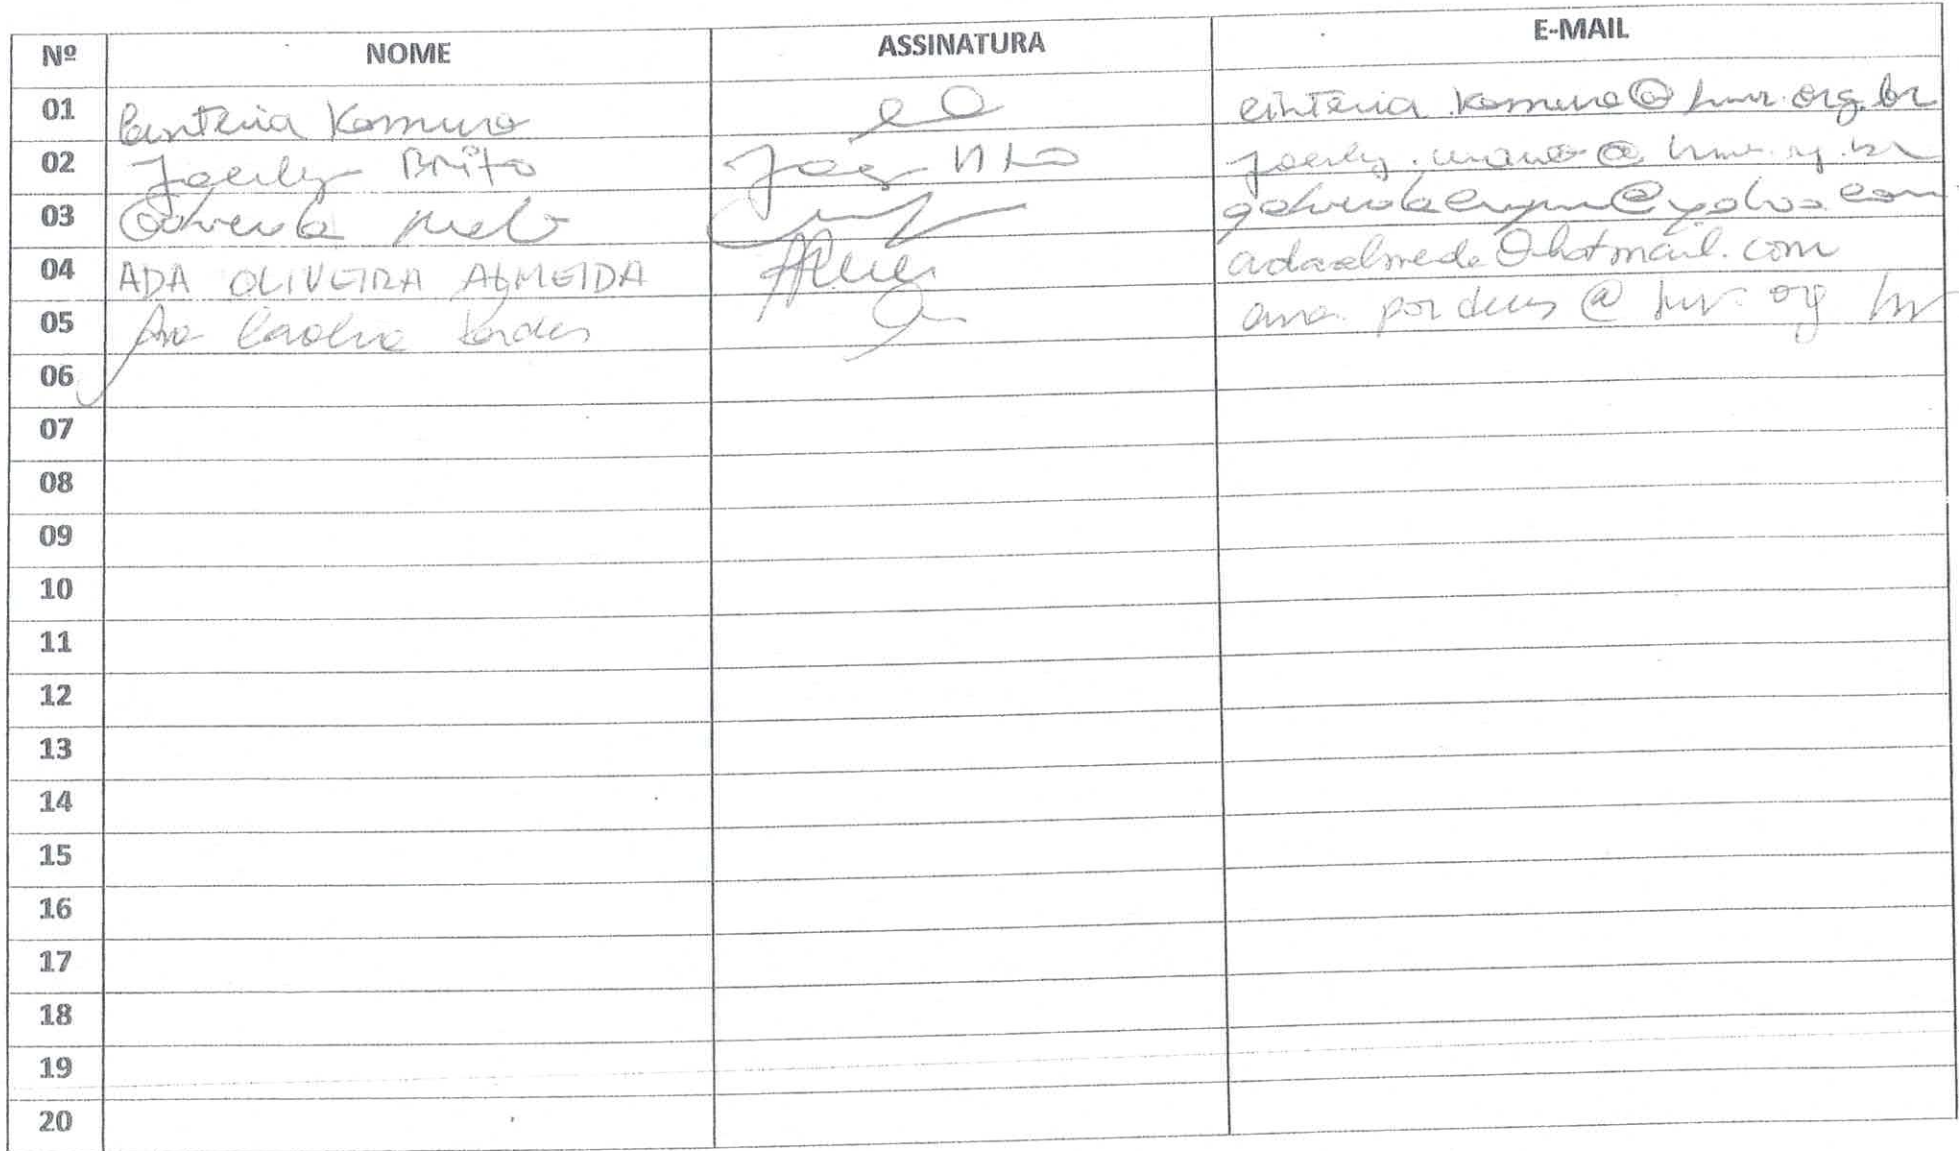 Nº NOME ASSINATURA E-MAIL
01 Cintcia Komura cintcia.komura@hmr.org.br
02 Joerly Brito
03 Gabriela Melo
04 ADA OLIVEIRA ALMEIDA adaalmeida@hotmail.com
05 Ana Carolina Pordeus ana.pordeus@hmr.org.br
06
07
08
09
10
11
12
13
14
15
16
17
18
19
20